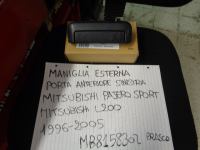 MANIGLIA ESTERNA
PORTA ANTERIORE SINISTRA
MITSUBISHI PAJERO SPORT
MITSUBISHI L200
1996-2005